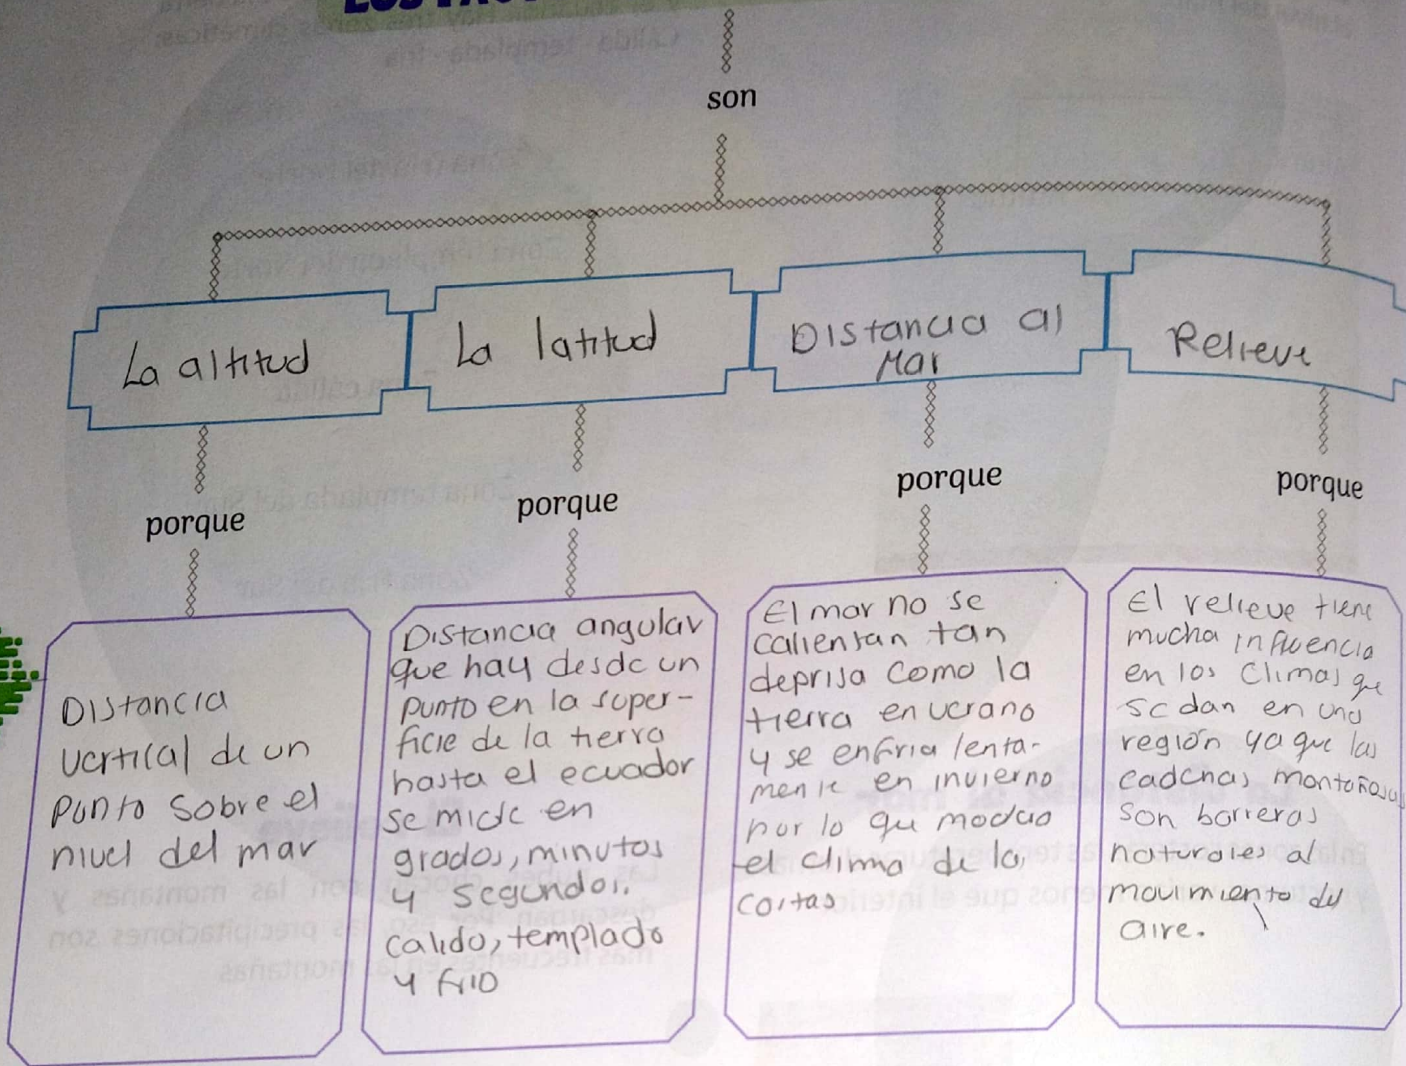 son
La altitud
La latitud
Distancia al
Mar
Relieve
porque
porque
porque
porque
Distancia
vertical de un
punto sobre el
nivel del mar
Distancia angular
que hay desde un
punto en la super-
ficie de la tierra
hasta el ecuador
se mide en
grados, minutos
y segundos.
calido, templado
y frio
El mar no se
calientan tan
deprisa como la
tierra en verano
y se enfria lenta-
mente en invierno
por lo que
el clima de la
costas
El relieve tiene
mucha influencia
en los climas que
se dan en una
región ya que las
cadenas montañosas
son barreras
naturales al
movimiento del
aire.